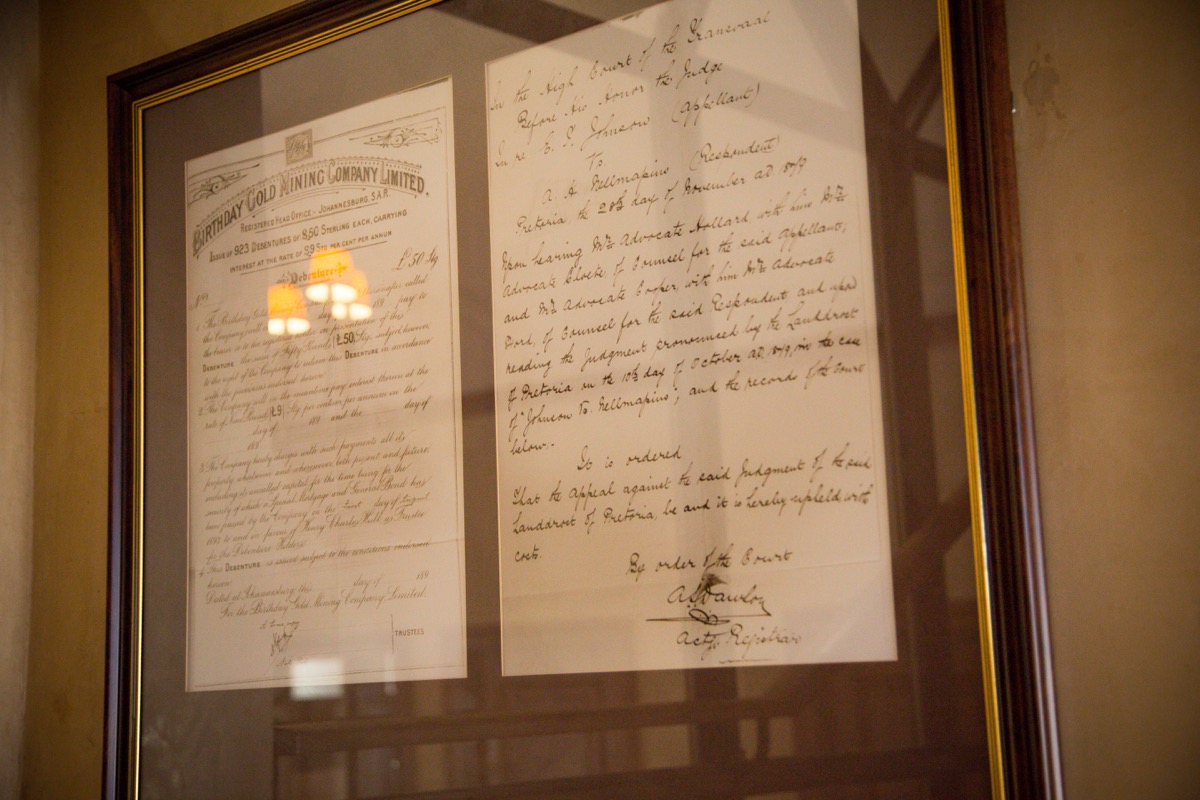 BIRTHDAY GOLD MINING COMPANY LIMITED.
REGISTERED HEAD OFFICE - JOHANNESBURG, S.A.R.
ISSUE OF 923 DEBENTURES OF £50 STERLING EACH, CARRYING
INTEREST AT THE RATE OF £9 STG PER CENT PER ANNUM
Debenture £50 Stg
No
1. The Birthday Gold called
the Company will day of 189 pay to
the bearer presentation of this
DEBENTURE the sum of Fifty Pounds (£50) Stg, subject however
to the right of the Company to redeem this DEBENTURE in accordance
with the provisions endorsed hereon.
2. The Company will in the meantime pay interest thereon at the
rate of Nine Pounds (£9) Stg per centum per annum on the
day of 189 and the day of
189
3. The Company hereby charges with such payments all its
property whatsoever and wheresoever both present and future
including its uncalled capital for the time being for the
security of which a Special Mortgage and General Bond has
been passed by the Company on the day of August
189 to and in favour of Henry Charles Hull as Trustee
for the Debenture Holders.
4. This DEBENTURE is issued subject to the conditions endorsed
hereon.
Dated at Johannesburg this day of 189
For the Birthday Gold Mining Company Limited.
TRUSTEES
In the High Court of the Transvaal
Before His Honor the Judge
In re E. P. Johnson (Appellant)
To
A H Nellmapius (Respondent)
Pretoria the 28th day of November AD 1879
Upon hearing Mr Advocate Hollard with him Mr
Advocate Cloete, of Counsel for the said Appellant,
and Mr Advocate Cooper, with him Mr Advocate
Ford, of Counsel for the said Respondent and upon
reading the Judgment pronounced by the Landdrost
of Pretoria on the 10th day of October AD 1879, in the case
of "Johnson To Nellmapius", and the records of the Court
below:-
It is ordered
That the Appeal against the said Judgment of the said
Landdrost of Pretoria, be and it is hereby upheld with
costs.
By order of the Court
Actg Registrar